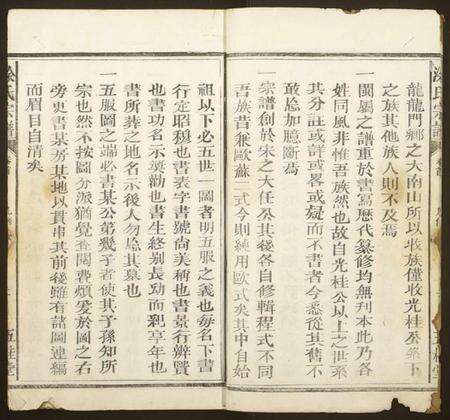 龍龍門鄉之大南山所以收族僅收光桂公派下
之族其他族人則不及焉
一閩屬之譜重於書寫歷代纂修均無刊本此乃各
姓同風非惟吾族然也故自光桂公以上之世系
其分註或詳或畧或疑而不書者今悉從其舊不
敢忌加臆斷焉
一宗譜創於宋之大任公其後各自修輯程式不同
吾族昔兼歐蘇二式今則純用歐式矣其中自始
祖以下必五世一圖者明五服之義也每名下書
行定昭穆也書表字書號尚美稱也書景行辦賢
也書功名示奨勸也書生終別長幼而親享年也
書所葬之地名示後人勿忘其墓也
一五服圖之端必書某公第幾子者使其子孫知所
宗也然不按圖分派猶覺查閱費煩爰於圖之右
旁更書某房某地以貫串其前後雖有諸圖連編
而眉目自清矣
涂氏宗譜
五桂堂